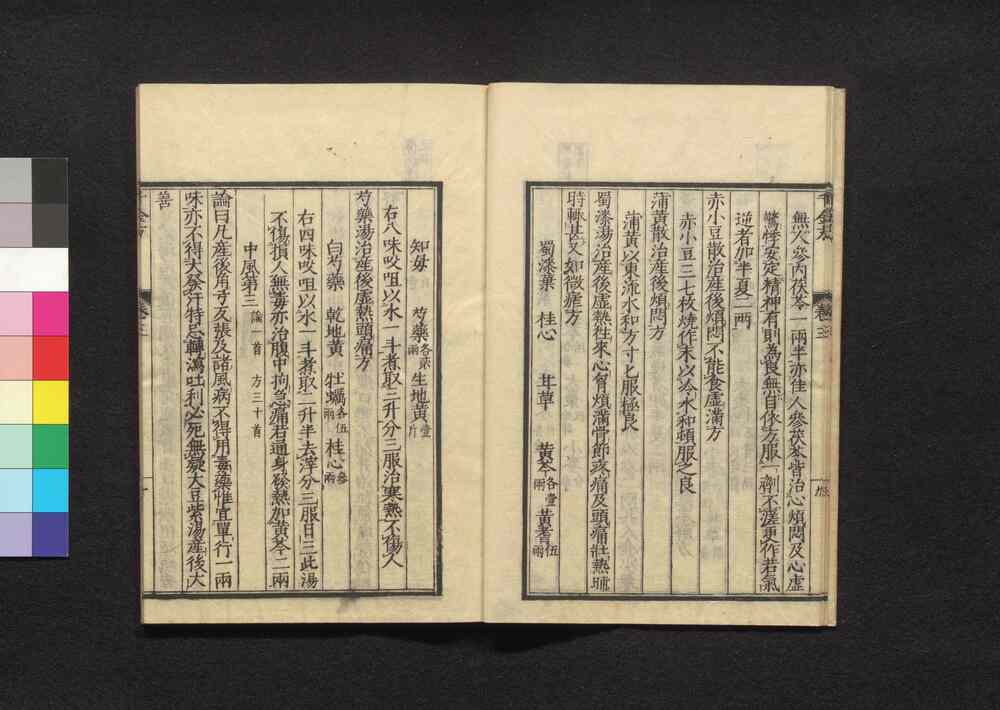 無人參内茯苓一兩半亦佳人參茯苓皆治心煩悶及心虛
驚悸安定精神有則爲良無自依方服一劑不瘥更作若氣
逆者加半夏二兩
赤小豆散治産後煩悶不能食虛滿方
赤小豆三七枚燒作末以冷水和頓服之良
蒲黃散治産後煩悶方
蒲黃以東流水和方寸匕服極良
蜀漆湯治産後虛熱往來心胷煩滿骨節疼痛及頭痛壯熱晡
時輙甚又如微瘧方
蜀漆葉 桂心 甘草 黃芩各壹兩 黃耆伍兩
知母 芍藥各貳兩 生地黃壹斤
右八味㕮咀以水一斗煮取三升分三服治寒熱不傷人
芍藥湯治産後虛熱頭痛方
白芍藥 乾地黃 牡蠣各伍兩 桂心參兩
右四味㕮咀以水一斗煮取二升半去滓分三服日三此湯
不傷損人無毒亦治腹中拘急痛若通身發熱加黃芩二兩
中風第三 論一首 方三十首
論曰凡産後角弓反張及諸風病不得用毒藥惟宜單行一兩
味亦不得大發汗特忌轉瀉吐利必死無疑大豆紫湯産後大
善
卷三